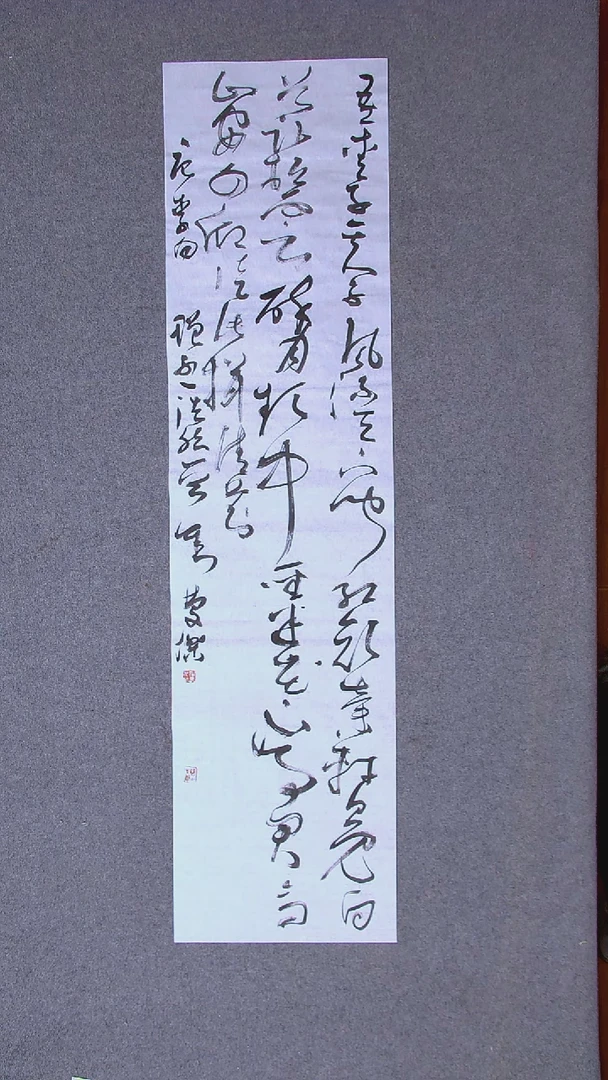 吾爱孟夫子风流天下闻红颜弃轩冕白
首卧松云醉月频中圣迷花不事君高
山安可仰徒此揖清芬
唐李白 赠孟浩然